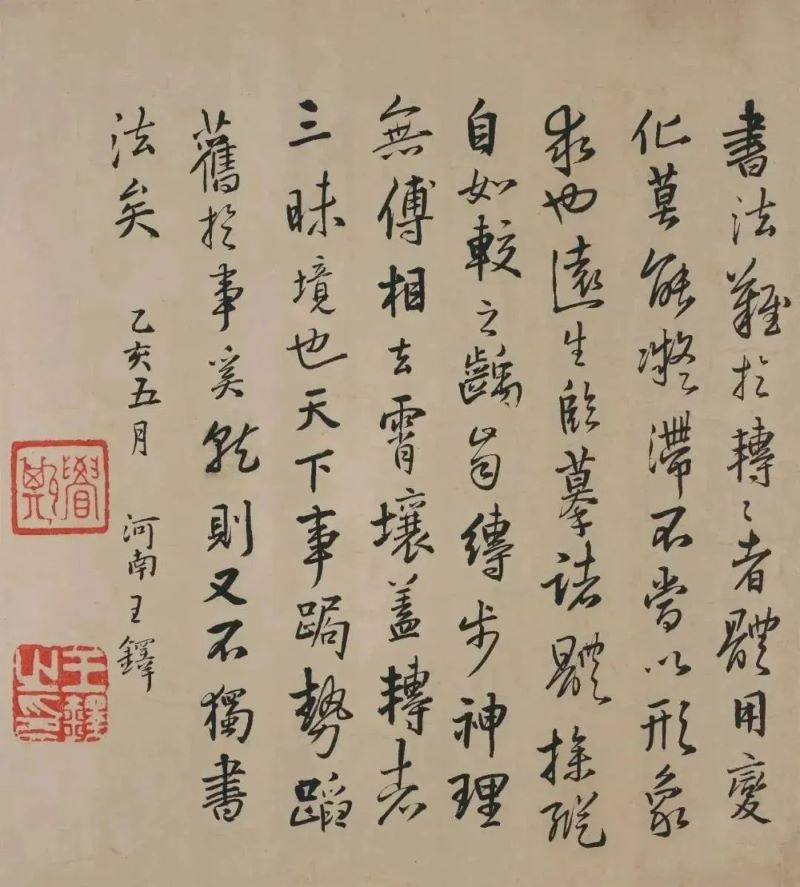 書法難於轉〻者體用變
化莫能凝滯不嘗以形象
求也遠生臨摹諸體操縱
自如較之縛步神理
無傅相去霄壤蓋轉者
三昧境也天下事跼勢蹈
舊於事奚就則又不獨書
法矣 乙亥五月 河南王鐸
王鐸之印